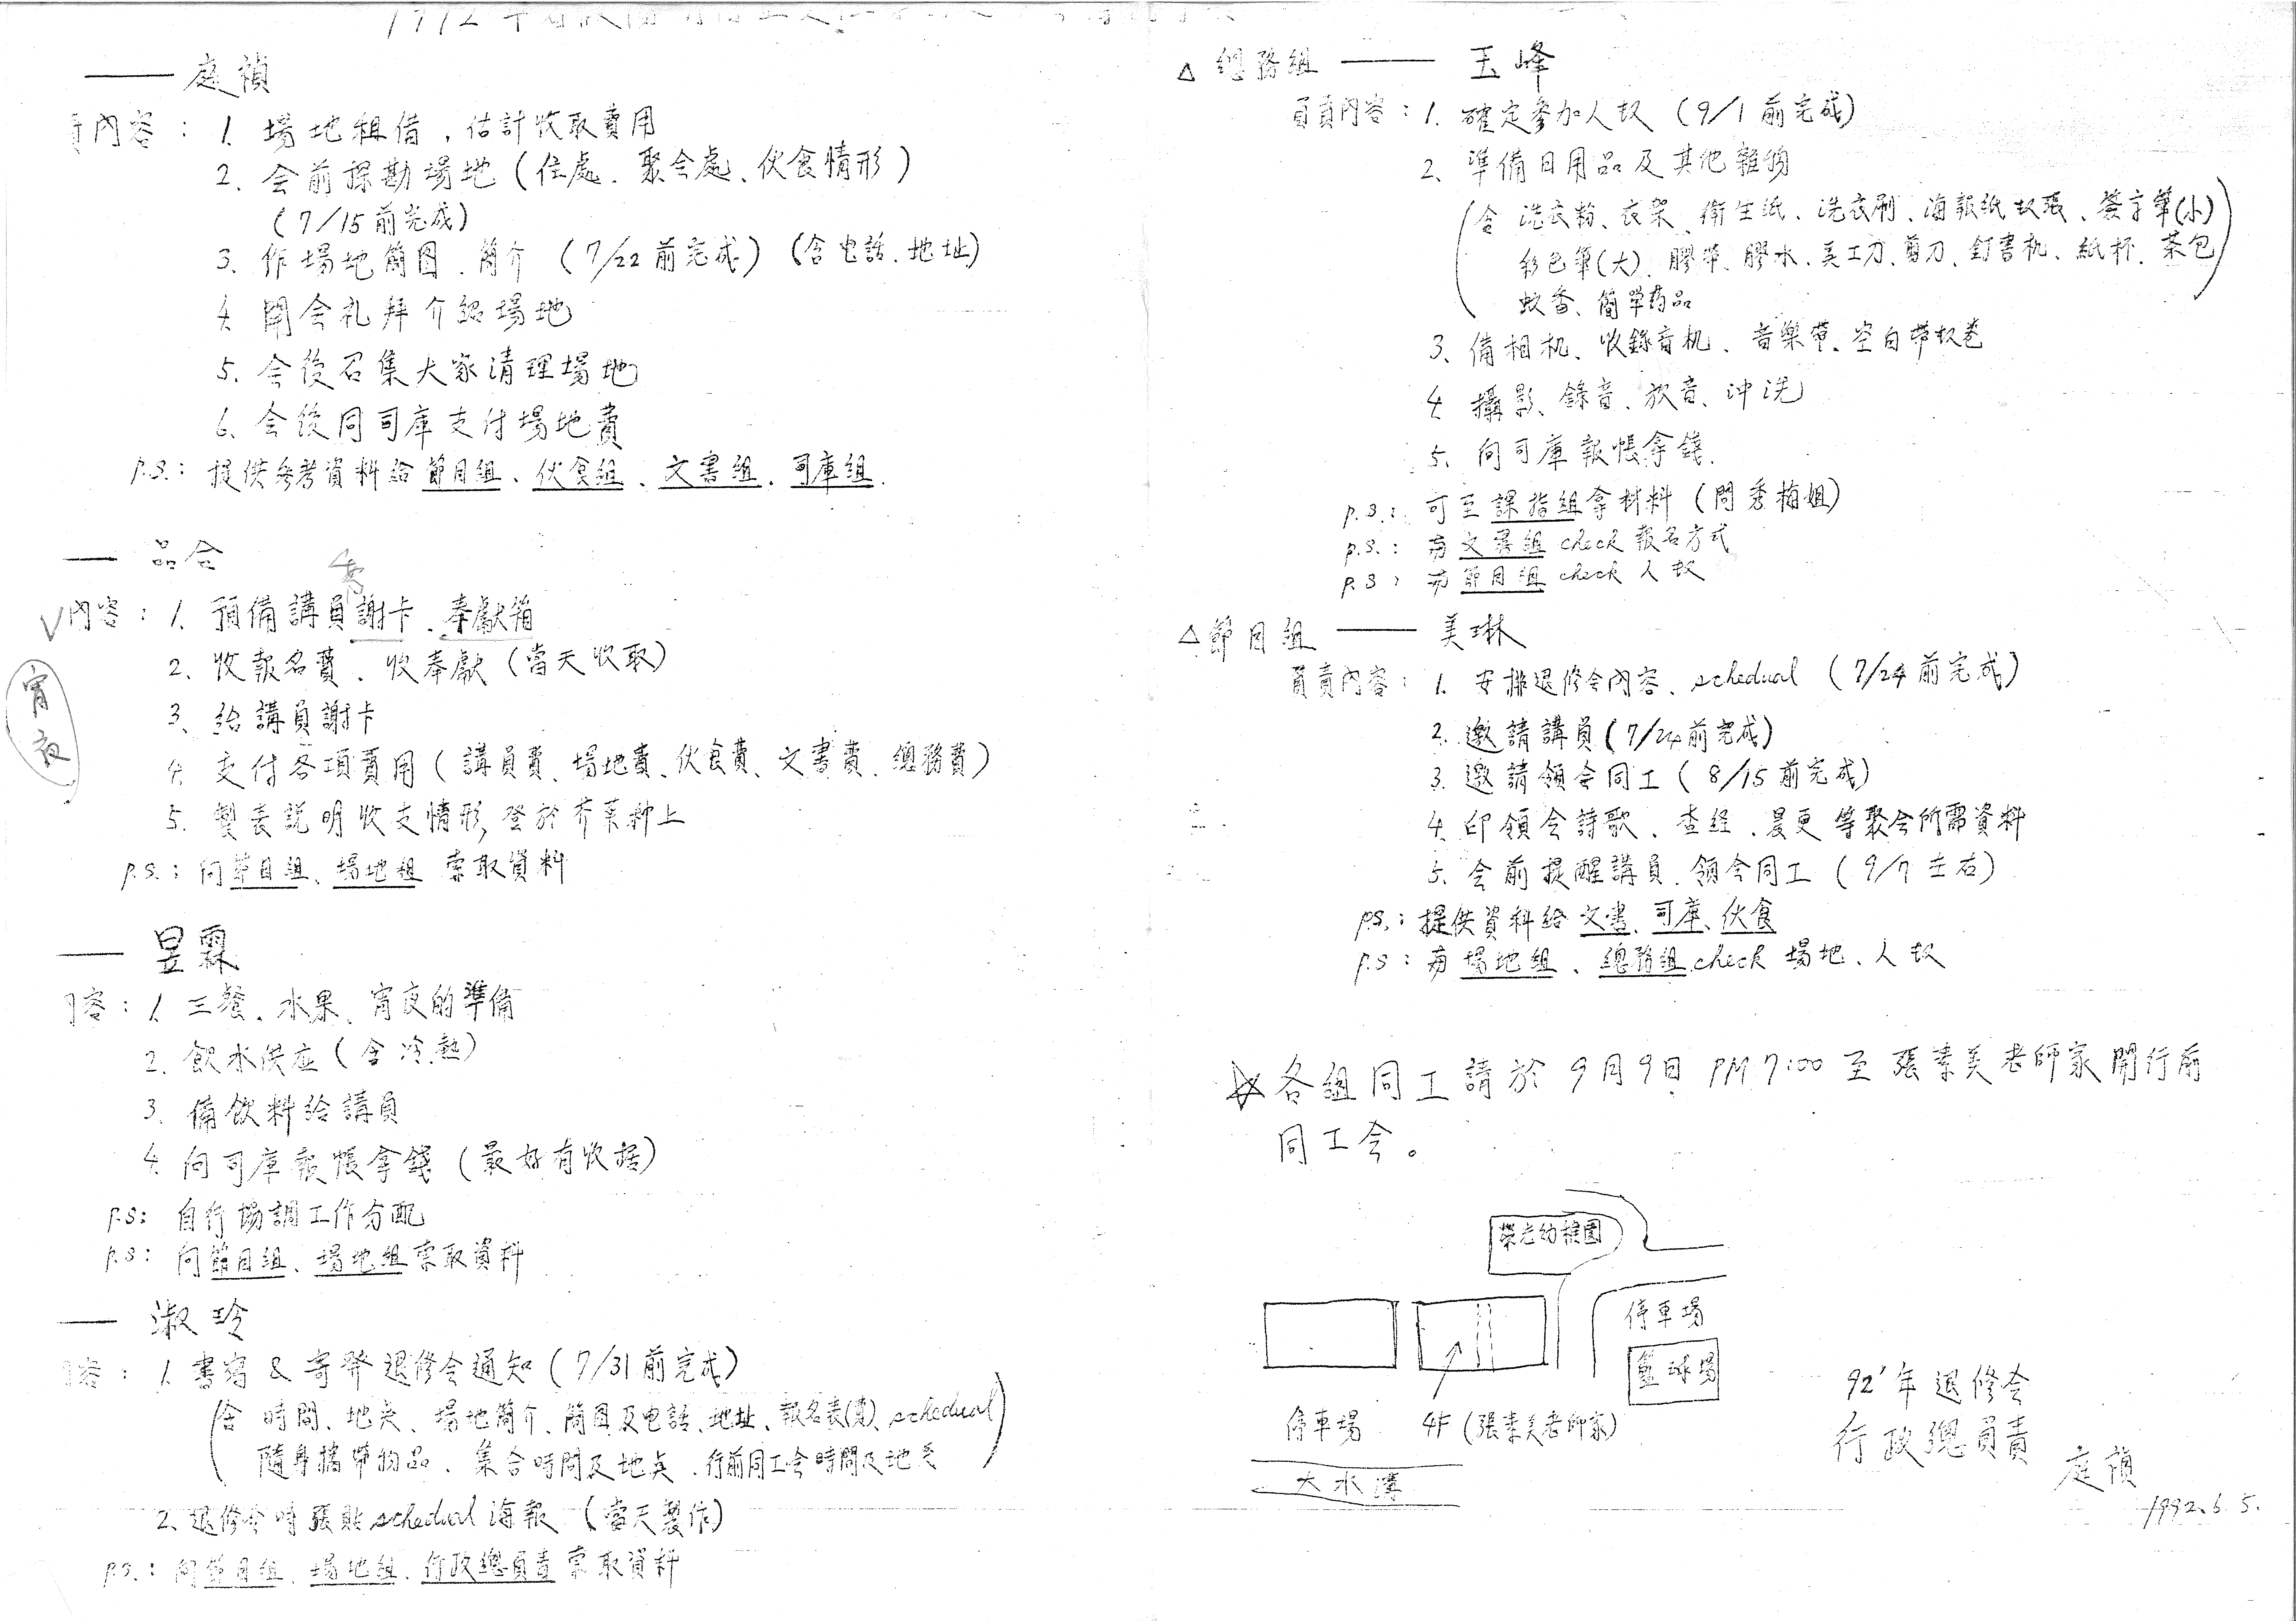 1992年
—— 庭禎
內容：1. 場地租借，估計收取費用
2. 会前探勘場地（住處、聚会處、伙食情形）
（7/15前完成）
3. 作場地簡图、簡介（7/22前完成）（含电話、地址）
4. 開会礼拜介紹場地
5. 会後召集大家清理場地
6. 会後同司庫支付場地費
p.s.：提供參考資料給節目組、伙食組、文書組、司庫組.
— 品合
內容：1. 預備講員謝卡、奉獻箱
2. 收報名費、收奉獻（當天收取）
宵夜
3. 給講員謝卡
4. 支付各項費用（講員費、場地費、伙食費、文書費、總務費）
5. 製表説明收支情形，登於芥菜种上
p.s.：向節目組、場地組索取資料
— 昱霖
容：1. 三餐、水果、宵夜的準備
2. 飲水供应（含冷.熱）
3. 備飲料給講員
4. 向司庫報帳拿錢（最好有收据）
p.s: 自行協調工作分配
p.s: 向節目組、場地組索取資料
— 淑玲
容：1. 書寫 & 寄發退修会通知（7/31前完成）
（含 時間、地点、場地簡介、簡图及电話、地址、報名表(費)、schedual
隨身攜帶物品、集合時間及地点、行前同工会時間及地点）
2. 退修会時張貼schedual海報（當天製作）
p.s.：向節目組、場地組、行政總負責索取資料
△ 總務組 —— 玉峰
負責內容：1. 確定參加人奴（9/1前完成）
2. 準備日用品及其他雜物
（含 洗衣粉、衣架、衛生紙、洗衣刷、海報紙奴張、簽字筆(小)
彩色筆(大)、膠帶、膠水、美工刀、剪刀、釘書机、紙杯、茶包
蚊香、簡單葯品）
3. 備相机、收錄音机、音樂帶、空白帶奴卷
4. 攝影、錄音、放音、沖洗
5. 向司庫報帳拿錢.
p.s.：可至課指組拿材料（問秀梅姐）
p.s.：与文書組 check 報名方式
p.s：与節目組 check 人奴
△ 節目組 —— 美琳
負責內容：1. 安排退修会內容、schedual（7/24前完成）
2. 邀請講員（7/24前完成）
3. 邀請領会同工（8/15前完成）
4. 印領会詩歌、查经、晨更等聚会所需資料
5. 会前提醒講員、領会同工（9/7左右）
p.s.：提供資料給文書、司庫、伙食
p.s：与場地組、總務組check 場地、人奴
☆ 各組同工請於9月9日 PM 7:00 至張素美老師家開行前
同工会。
榮光幼稚園
停車場
籃球場
停車場 4F（張素美老師家）
大水溝
92'年退修会
行政總負責
庭禎
1992.6.5.